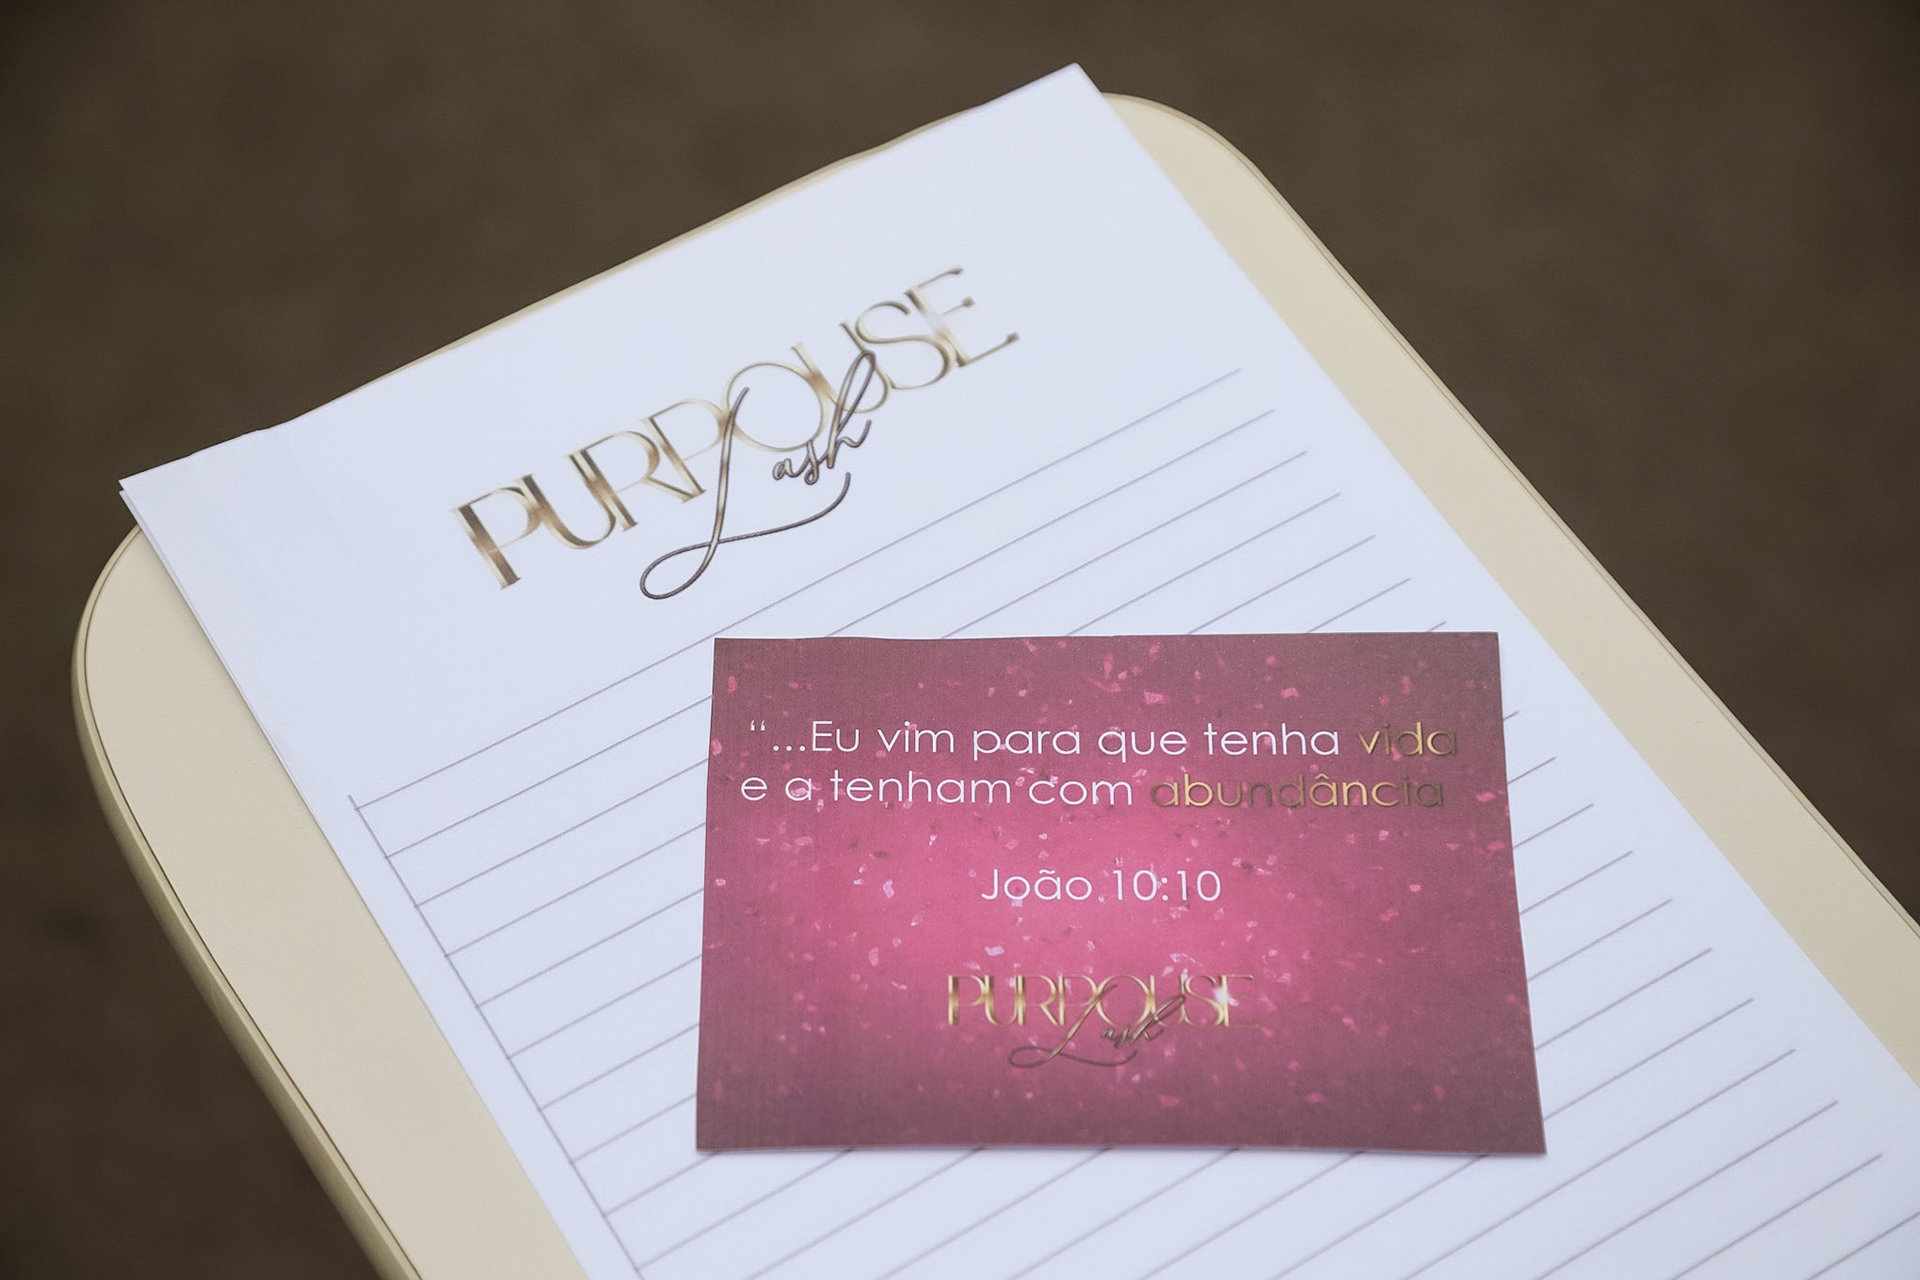 PURPOUSE
Lash
“...Eu vim para que tenha vida
e a tenham com abundância
João 10:10
PURPOUSE
Lash